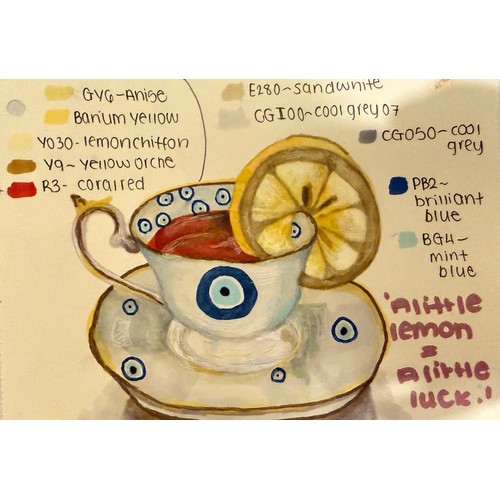 GY6~Anise
Barium yellow
Y030-lemonchiffon
Y9~yellow orche
R3- coralred
E280~sandwhite
CGI00~cool grey 07
CG050~cool
grey
PB2~
brilliant
blue
BG4~
mint
blue
'A little
lemon
=
A little
luck.'